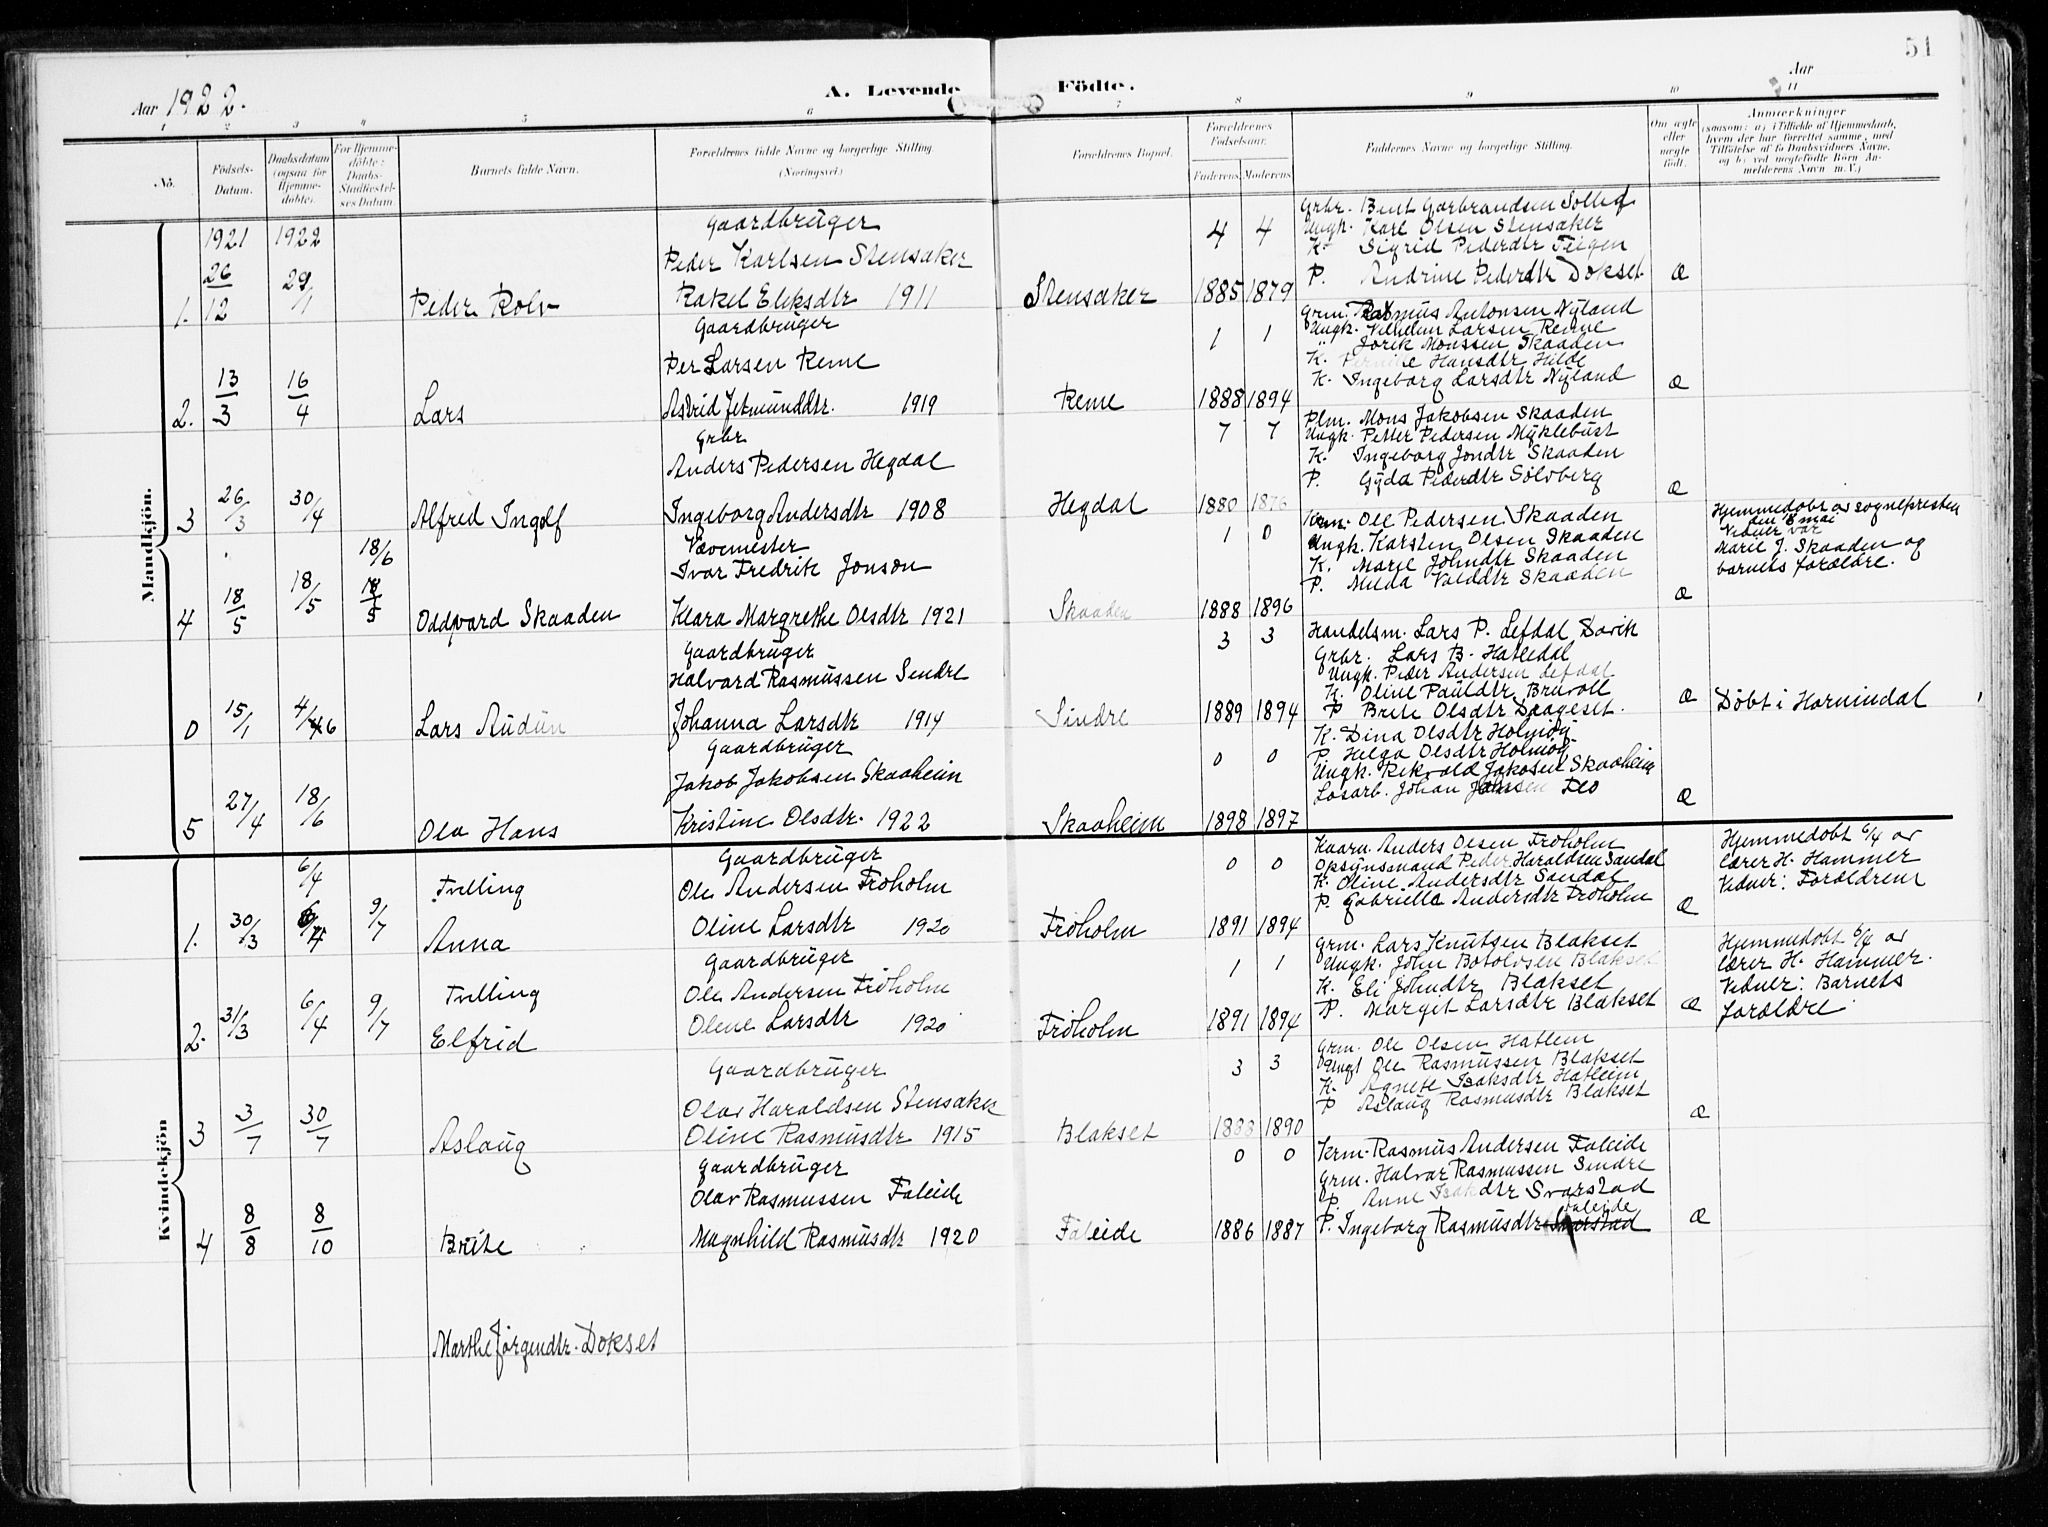 51
Aar 1922.
A. Levende Födte.
Aar
1 2 3 4 5 6 7 8 9 10 11
No.
Födsels-Datum.
Daabsdatum (ogsaa for Hjemmedöbte).
For Hjemmedöbte: Daabs-Stadfæstelses Datum.
Barnets fulde Navn.
Forældrenes fulde Navne og borgerlige Stilling. (Næringsvei)
Forældrenes Bopæl.
Forældrenes Födselsaar.
Faderens Moderens
Faddernes Navne og borgerlige Stilling.
Om ægte eller uægte födt.
Anmærkninger
(saasom: a) i Tilfælde af Hjemmedaab, hvem der har forrettet samme, med Tilföielse af to Daabsvidners Navne, og b) ved uegtefödte Börn Anmelderens Navn m.V.)
Mandkjön.
1921 1922
1. 26/12 29/1
Peder Rolv
Gaardbruger
Peder Karlsen Stensaker
Rakel Eliksdtr 1911
Stensaker
4 4
1885 1879
Grbr. Bent Garbrandsen Solli
Ungk. Karl Olsen Stensaker
K. Sigrid Pedersdtr Feigen
P. Andrine Pedersdtr Dokset
Æ
2. 13/3 16/4
Lars
Gaardbruger
Per Larsen Reme
Astrid Jetmunddtr. 1919
Reme
1 1
1888 1894
Grm. Rasmus Antonsen Nyland
Ungk. Vilhelm Larsen Reme
" Jørik Monssen Skaaden
K. Pernille Hansdtr Hilde
K. Ingeborg Larsdtr Nyland
Æ
3 26/3 30/4
Alfred Ingolf
Grbr
Anders Pedersen Hegdal
Ingeborg Andersdtr 1908
Hegdal
7 7
1880 1876
Plm. Mons Jakobsen Skaaden
Ungk. Petter Pedersen Myklebust
K. Ingeborg Jondtr Skaaden
P. Gyda Pedersdtr Solvberg
Æ
4 18/5 18/5 18/6 18/5
Oddvard Skaaden
Vævemester
Ivar Fredrik Jonson
Klara Margrethe Olsdtr 1921
Skaaden
1 0
1888 1896
Krm. Ole Pedersen Skaaden
Ungk. Karsten Olsen Skaaden
K. Marie Johndtr Skaaden
P. Milda Skaaden
Æ
Hjemmedøbt av sognepresten
den 18 mai
Vidner var
Marie J. Skaaden og
barnets forældre.
0 15/1 4/6
Lars Audun
Gaardbruger
Halvard Rasmussen Sendre
Johanna Larsdtr 1914
Sindre
3 3
1889 1894
Handelsm. Lars P. Lefdal Davik
Grbr. Lars B. Hatledal
Ungk. Peder Andersen Lefdal
K. Oline Pauldtr Bruvoll
P Brite Olsdtr Draageset.
Æ
Døbt i Hornindal
5 27/4 18/6
Ola Hans
Gaardbruger
Jakob Jakobsen Skaaheim
Kristine Olsdtr. 1922
Skaaheim
0 0
1898 1897
K. Dina Olsdtr Holmøy
P. Helga Olsdtr Holmøy
Ungk. Rikvald Jakosen Skaaheim
Losarb. Johan Jansen Flo
Æ
Kvindekjön
1. 30/3 6/4 6/4 9/7
Tvilling
Anna
Gaardbruger
Ole Andersen Froholm
Oline Larsdtr 1920
Froholm
0 0
1891 1894
Kaarm. Anders Olsen Froholm
Opsynsmand Peder Haraldsen Sandal
K. Oline Andersdtr Sandal
P. Gabrielle Andersdtr Froholm
Æ
Hjemmedøbt 6/4 av
lærer H. Hammer
Vidner: Forældrene
2. 31/3 6/4 9/7
Tvilling
Elfrid
Gaardbruger
Ole Andersen Froholm
Oline Larsdtr 1920
Froholm
1 1
1891 1894
Grm. Lars Knutsen Blakset
Ungk. John Botolvsen Blakset
K. Eli Johndtr Blakset
P. Margit Larsdtr Blakset
Æ
Hjemmedøbt 6/4 av
lærer H. Hammer.
Vidner: Barnets
forældre
3 3/7 30/7
Aslaug
Gaardbruger
Olav Haraldsen Stensaker
Oline Rasmusdtr 1915
Blakset
3 3
1888 1890
Grm. Ole Olsen Hatlem
Ungk Ole Rasmussen Blakset
K. Agnete Isaksdtr Hatleim
P Aslaug Rasmusdtr Blakset
Æ
4 8/8 8/10
Brite
Gaardbruger
Olav Rasmussen Faleide
Magnhild Rasmusdtr 1920
Faleide
0 0
1886 1887
Krm. Rasmus Andersen Faleide
Grm. Halvar Rasmussen Sindre
P. Anne Isakdtr Svarstad
P. Ingeborg Rasmusdtr Svarstad Faleide
Æ
Marthe Jørgendtr. Dokset